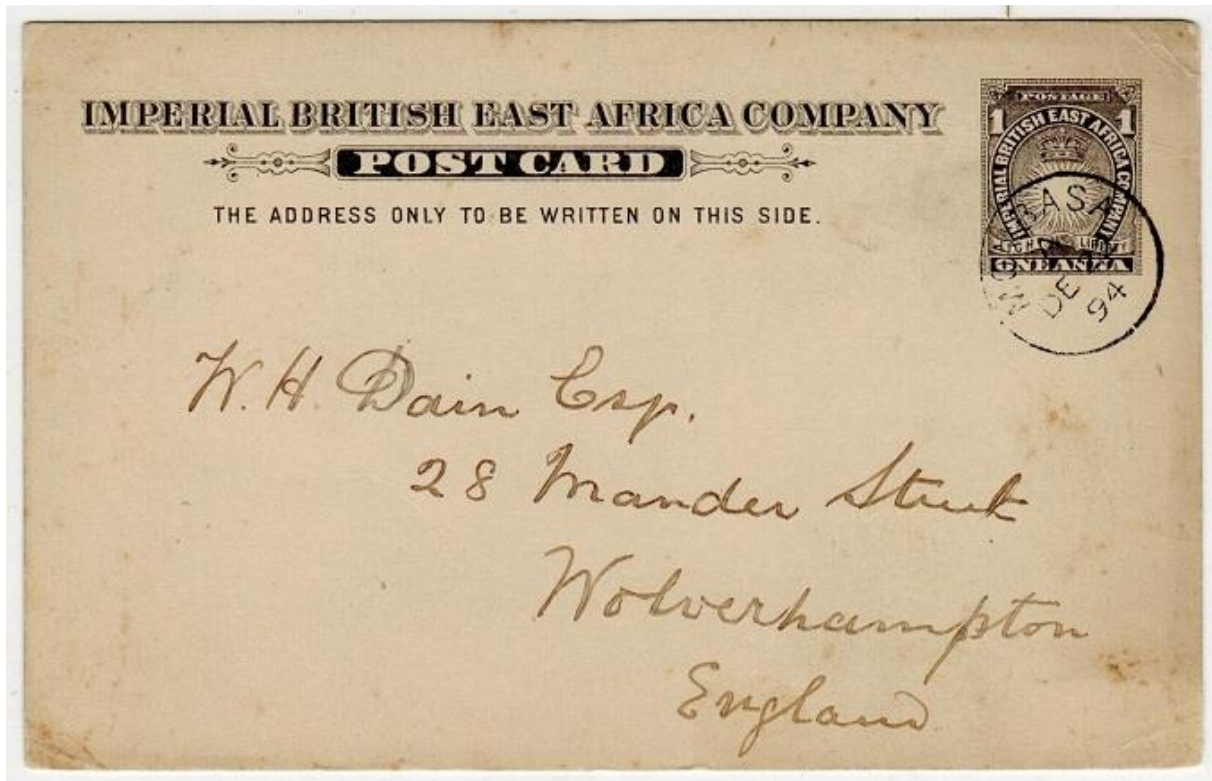 IMPERIAL BRITISH EAST AFRICA COMPANY
POST CARD
THE ADDRESS ONLY TO BE WRITTEN ON THIS SIDE.
POSTAGE
1 1
IMPERIAL BRITISH EAST AFRICA COMPANY
LIBERTY
ONE ANNA
MOMBASA
DE
94
W. H. Dain Esq.
28 Mander Street
Wolverhampton
England